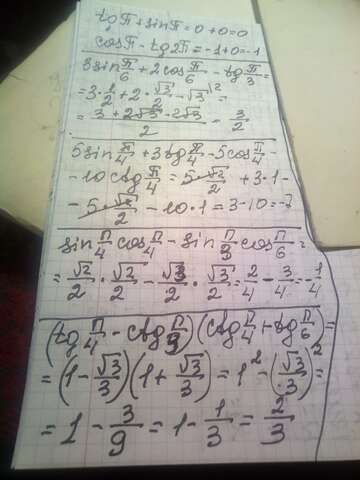 tg π + sin π = 0 + 0 = 0
cos π - tg 2π = -1 + 0 = -1
3 sin π/6 + 2 cos π/6 - tg π/3 =
= 3 · 1/2 + 2 · √3/2 - √3 \2 =
= (3 + 2√3 - 2√3)/2 = 3/2
5 sin π/4 + 3 tg π/4 - 5 cos π/4 -
- 10 ctg π/4 = 5·√2/2 + 3·1 -
- 5·√2/2 - 10·1 = 3 - 10 = -7
sin π/4 cos π/4 - sin π/3 cos π/6 =
= √2/2 · √2/2 - √3/2 · √3/2 = 2/4 - 3/4 = -1/4
(tg π/4 - ctg π/3)(ctg π/4 + tg π/6) =
= (1 - √3/3)(1 + √3/3) = 1² - (√3/3)² =
= 1 - 3/9 = 1 - 1/3 = 2/3